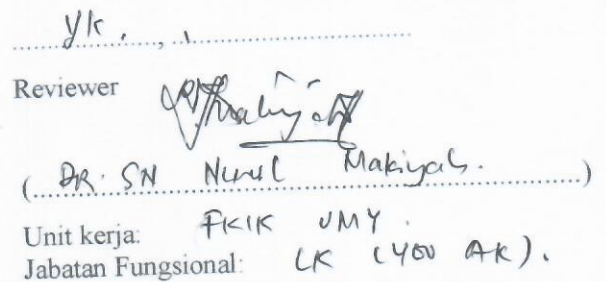 Yk. ......, ..........................
Reviewer
(... DR. SN Nurul Makiyah. ...)
Unit kerja: FKIK UMY.
Jabatan Fungsional: LK (400 AK).